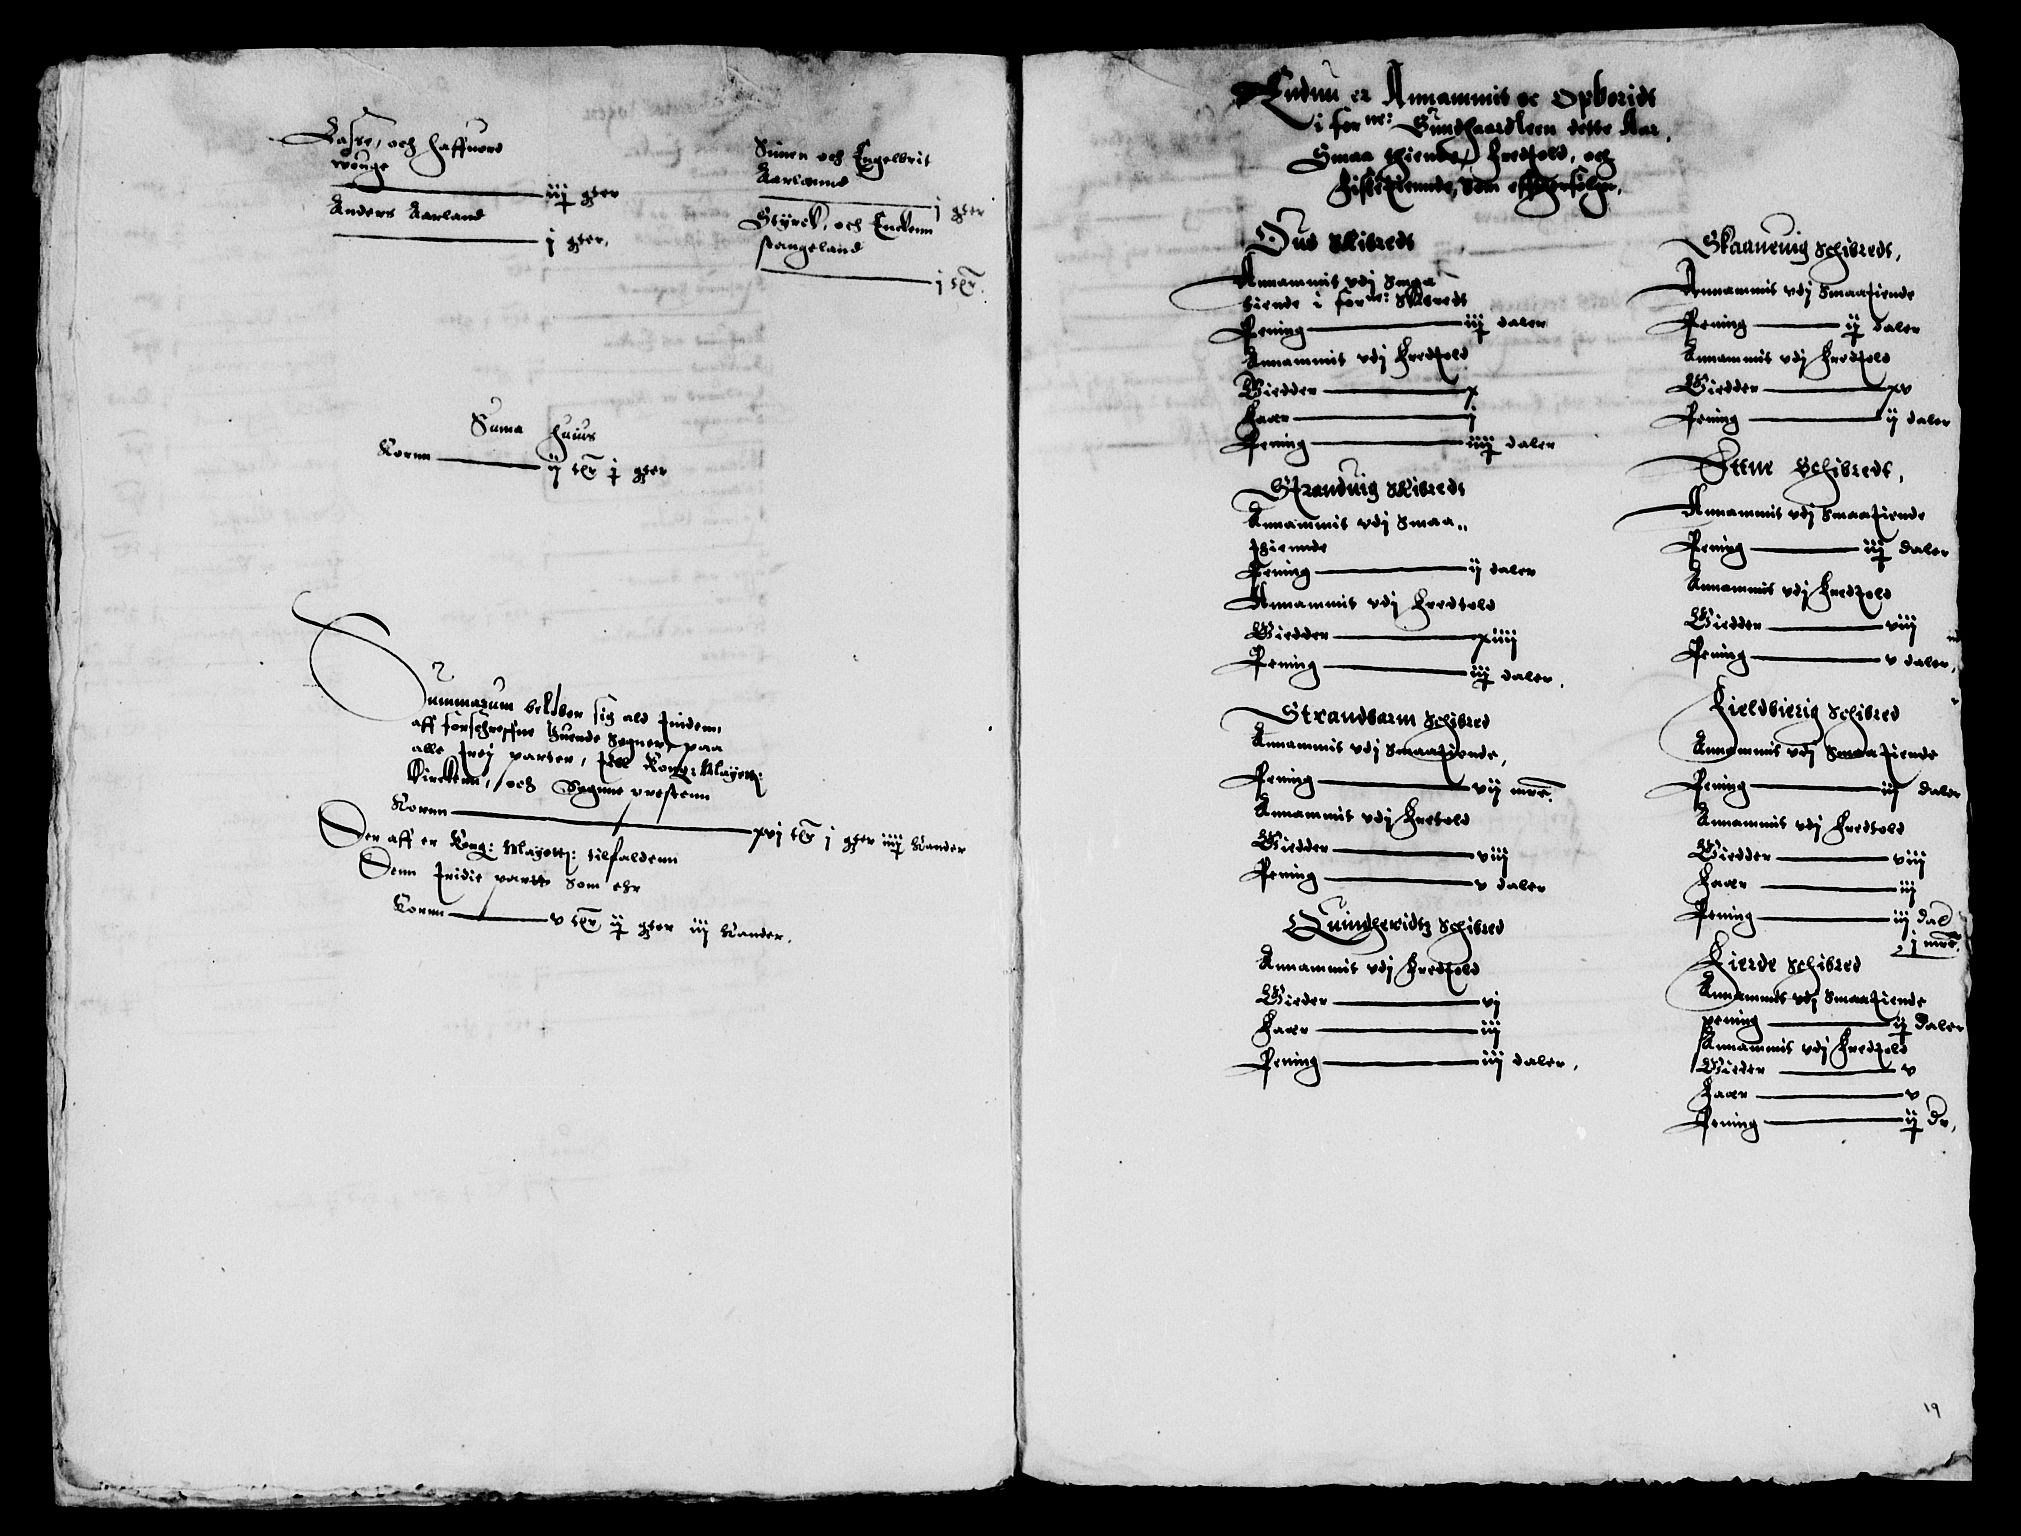 Lasse, och haffuord
wonge
——— iij gter
Anders Aarland
——— j gter,
Simen och Engelbrit
Aarland
——— j gter
Styrck, och Enckenn
stangeland
——— j tr.
Suma huius
Kornn ——— ij tr j gter
Summarum beløber sig ald tindenn
aff forschreffne Huende Sogner, paa
alle trej parter, till Kong: Mayett:
Kirckenn, och Sogne prestenn
Kornn ——— xvj tr j gter iiij Kander
Der aff er Kong: Mayett: tilfaldenn
Denn tridie partt som ehr
Kornn ——— v tr ij gter iij Kander.
Endnu er Annammit oc Opboridt
i forne: Sundhaardleen dette Aar,
Smaa thiende, Fredtold, och
Fisketiennde, som efftherfølger,
Ous Skibredt
Annammit vdj Smaa
tiende i forne: Skibredt
Pening ——— iij daler
Annammit vdj Fredtold
Wiedder ——— x
Faar ——— j
Pening ——— iiij daler
Strandvig Skibredt
Annammit vdj Smaa„
thiennde
Pening ——— ij daler
Annammit vdj Fredtold
Wiedder ——— xiiij
Pening ——— iij daler.
Strandbarm Schibred
Annammit vdj Smaatiende,
Pening ——— vij mrc.
Annammit vdj Fretold
Wiedder ——— viij
Pening ——— v daler
Quindheridtz Schibred
Annammit vdj Fredtold
Wieder ——— vj
Faar ——— iij
Pening ——— iij daler,
Skaanevig Schibredt,
Annammit vdj Smaatiende
Pening ——— ij daler
Annammit vdj Fredtold
Wiedder ——— xv
Pening ——— ij daler
Ettne Schibredt,
Annammit vdj Smaatiende
Pening ——— iij daler
Annammit vdj Fredtold
Wiedder ——— viij
Pening ——— v daler,
Fieldbierig Schibred
Annammit vdj Smaatiende
Pening ——— iij daler
Annammit vdj Fredtold
Wiedder ——— viij
Faar ——— iij
Pening ——— iij dal
j mrc.
Fierde Schibred
Annammit vdj Smaatiende
pening ——— ij daler
Annammit vdj Fredtold
Wieder ——— v
Faar ——— v
Pening ——— ij dr,
19